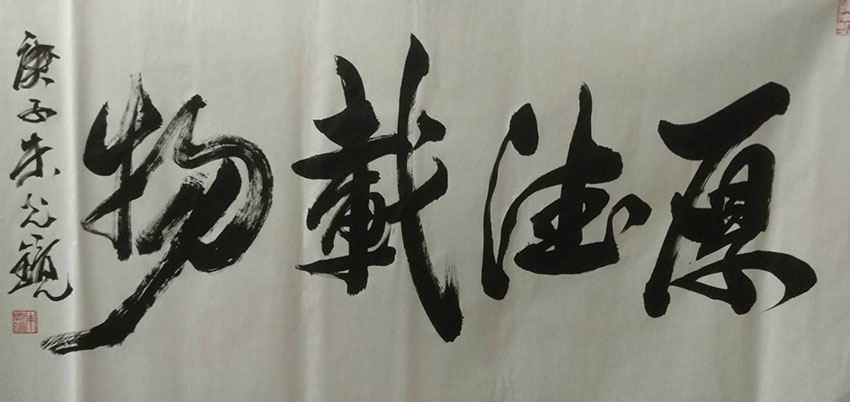 厚德載物
庚子朱光鏡